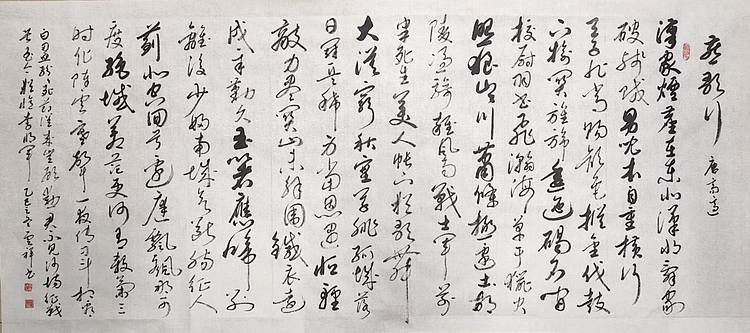 燕歌行 唐高適
漢家煙塵在東北漢將辭家
破殘賊男兒本自重橫行
天子非常賜顏色摐金伐鼓
下榆關旌旆逶迤碣石間
校尉羽書飛瀚海單于獵火
照狼山川蕭條極邊土胡
陵雜風雨戰士軍前
半死生美人帳下猶歌舞
大漠窮秋塞草腓孤城落
日鬥兵稀身當恩遇恒輕
敵力盡關山未解圍鐵衣遠
戍辛勤久玉箸應啼別
離後少婦南城欲斷腸征人
薊北空回首邊庭飄颻那可
度絕域蒼茫更何有殺氣三
時作陣雲寒聲一夜傳刁斗相看
白刃血紛死節從來豈顧勳君不見沙場征戰
苦至今猶憶李將軍 乙巳之冬雲祥書